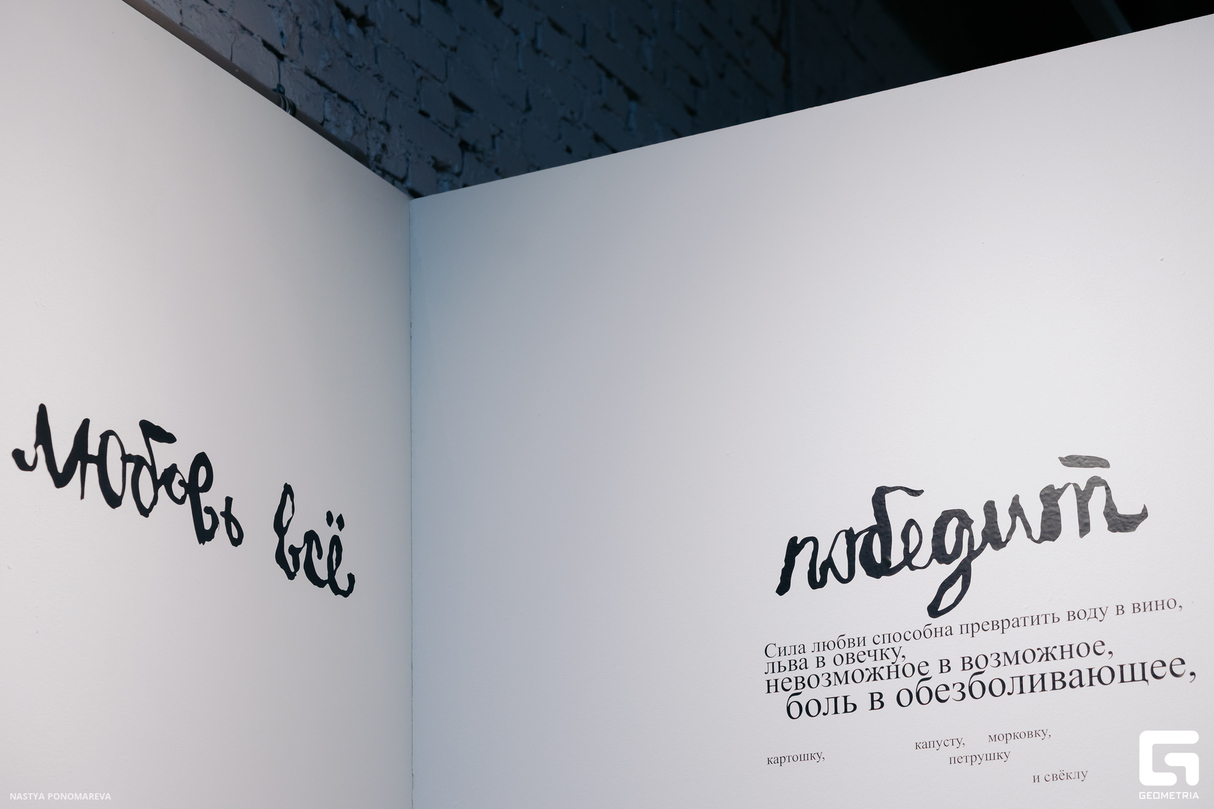 любовь всё
победит
Сила любви способна превратить воду в вино,
льва в овечку,
невозможное в возможное,
боль в обезболивающее,
картошку, капусту, морковку,
петрушку
и свёклу
NASTYA PONOMAREVA
GEOMETRIA